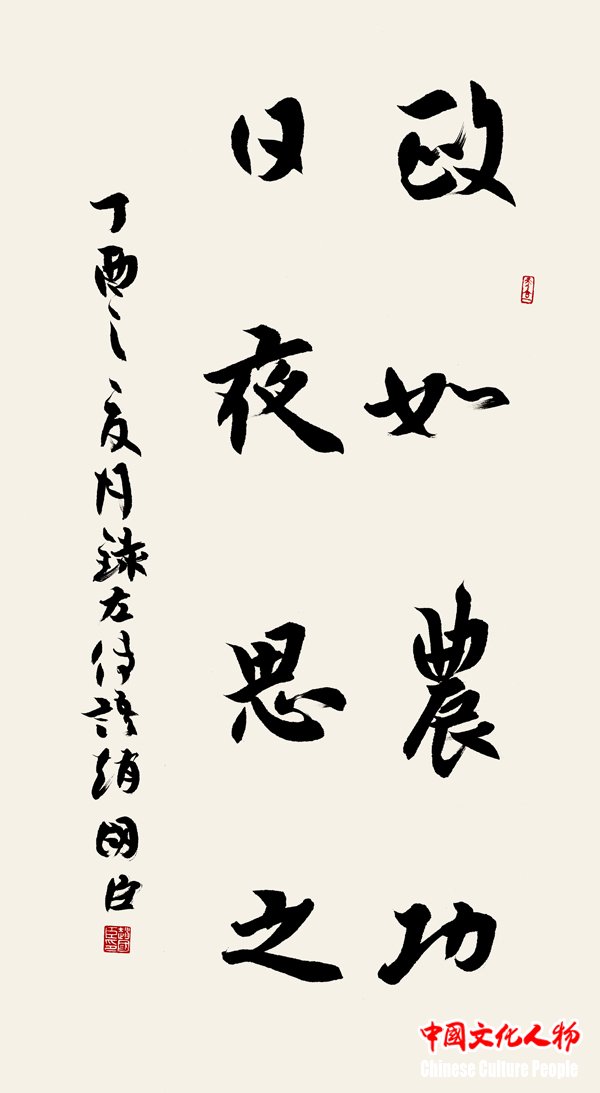 政如農功
日夜思之
丁酉之夏月錄左傳語趙國臣
中國文化人物
Chinese Culture People